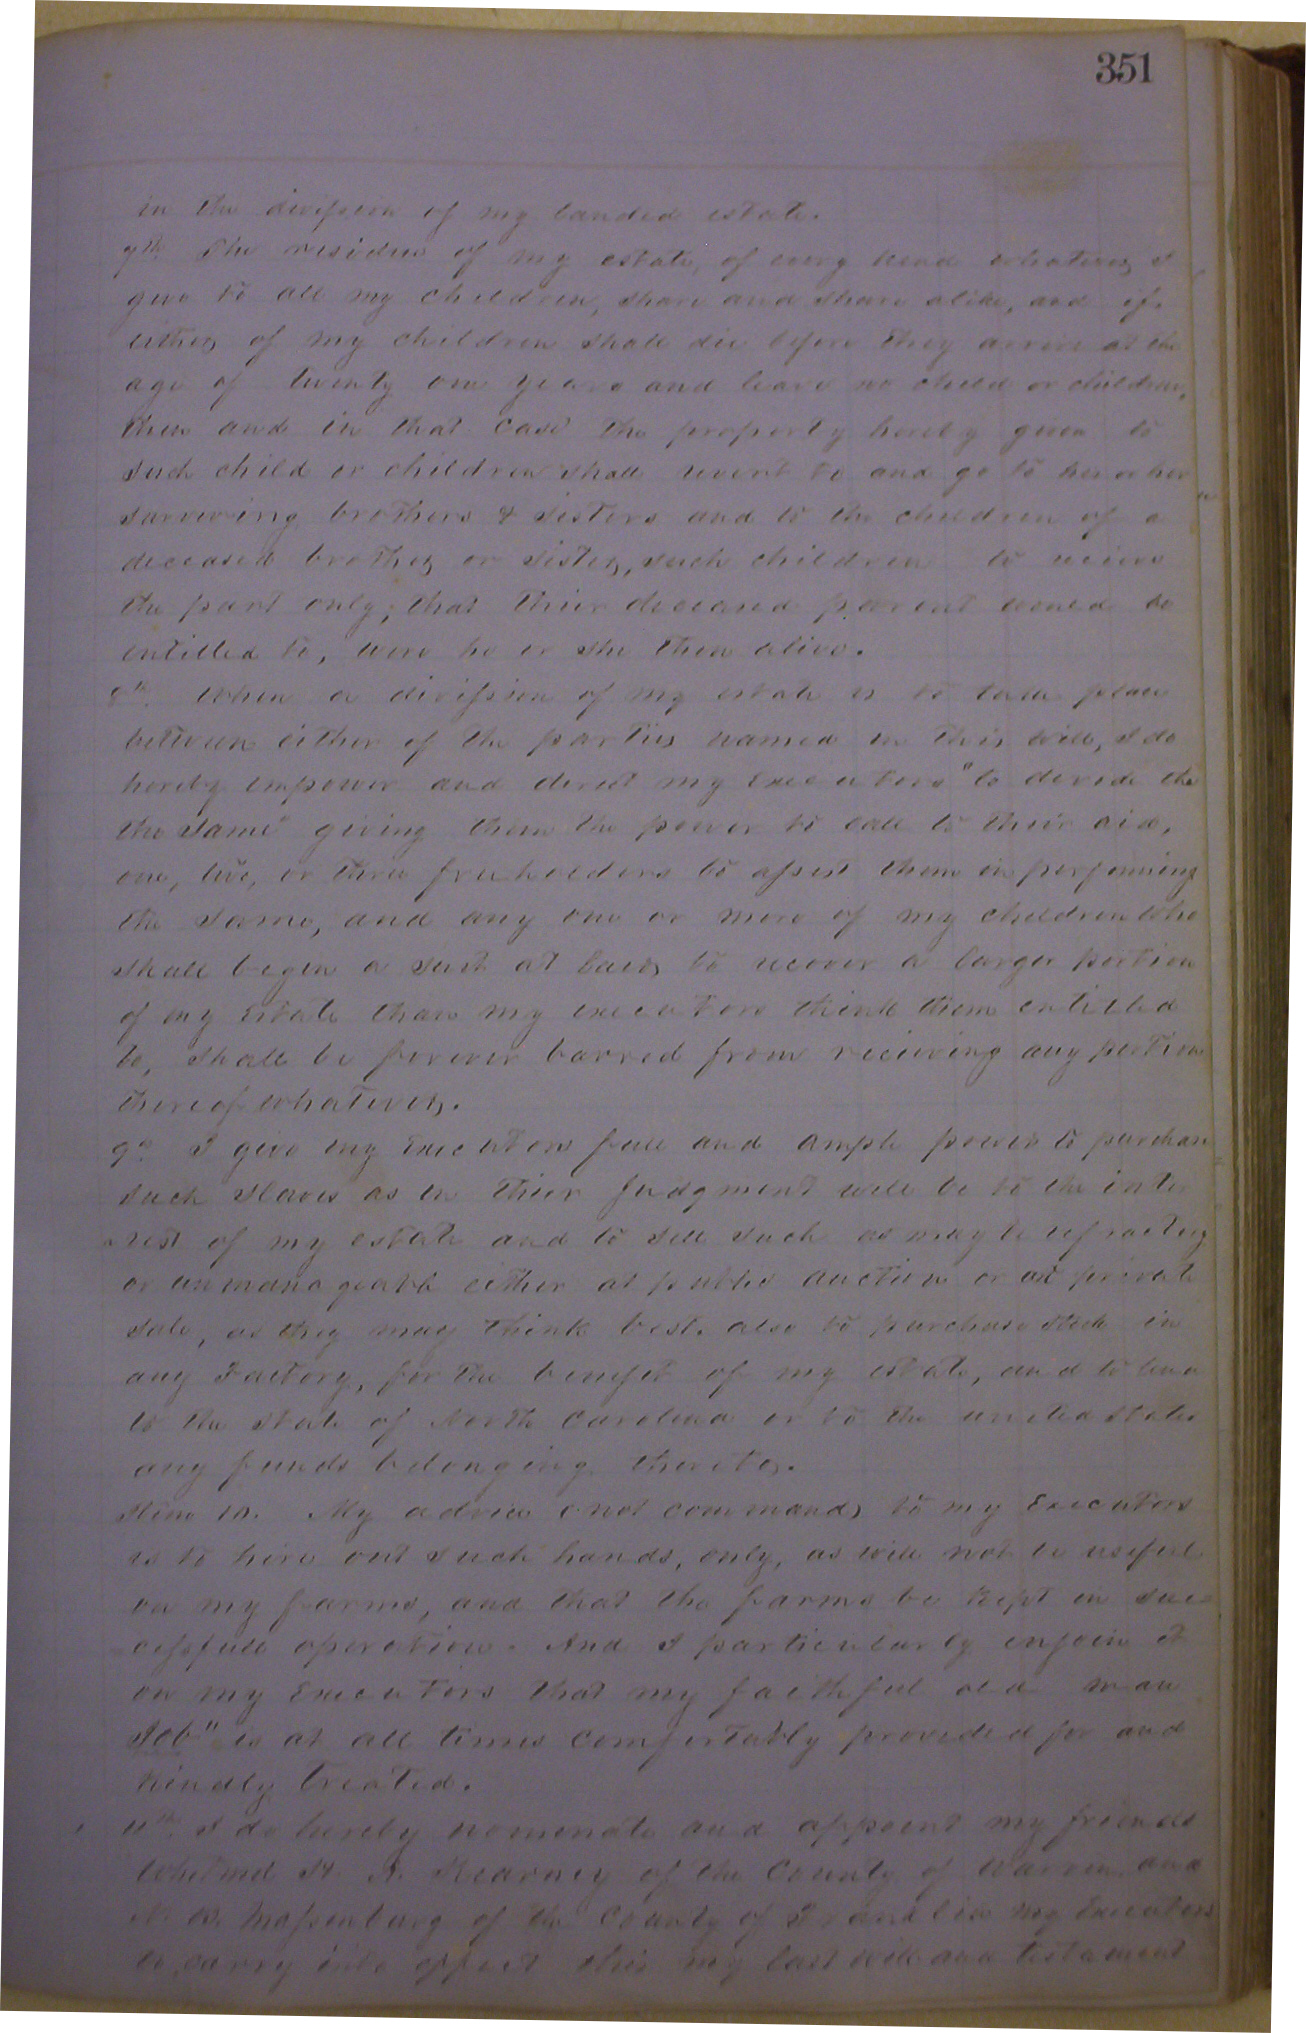 351
in the division of my landed estate.
7th. The residue of my estate, of every kind whatever, I
give to all my children, share and share alike, and if
either of my children shall die before they arrive at the
age of twenty one years and leave no child or children,
then and in that case the property hereby given to
such child or children shall revert to and go to his or her
surviving brothers & sisters and to the children of a
deceased brother or sister, such children to receive
the part only, that their deceased parent would be
entitled to, were he or she then alive.
8th. When a division of my estate is to take place
between either of the parties named in this will, I do
hereby empower and direct my Executors "to devide the
the same" giving them the power to call to their aid,
one, two, or three freeholders to assist them in performing
the same, and any one or more of my children who
shall begin a suit at law, to recover a larger portion
of my Estate than my executors think them entitled
to, shall be forever barred from receiving any portion
thereof whatever.
9th I give my Executors full and ample power to purchase
such slaves as in their judgment will be to the inte
rest of my estate and to sell such as may be refractory
or unmanageable either at public auction or at private
sale, as they may think best. also to purchase stock in
any Factory, for the benefit of my estate, and to loan
to the State of North Carolina or to the united states
any funds belonging thereto.
Item 10. My advice (not command) to my Executors
is to hire out such hands, only, as will not be useful
on my farms, and that the farms be kept in suc=
cessful operation. And I particularly enjoin it
on my Executors that my faithful old man
Job" is at all times comfortably provided for and
kindly treated.
11th. I do hereby nominate and appoint my friends
Whitmel H. A. Kearney of the County of Warren and
N. B. Massenburg of the County of Franklin my Executors
to carry into effect this my last will and testament